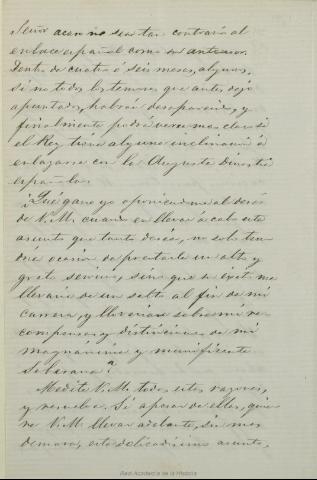 Señor acaso no sea tan contrario al
enlace español como su antecesor.
Dentro de cuatro ó seis meses, algunos,
si no todos los temores que antes dejo
apuntados, habrán desaparecido, y
finalmente podrá verse mas claro si
el Rey tiene alguna inclinacion á
enlazarse con la Augusta Dinastia
española.
¿Qué gano yo oponiendome al deseo
de V.M. cuando en llevar á cabo este
asunto que tanto desea, no solo ten
dré ocasion de prestarle un alto y
grato servicio, sino que su éxito me
llevaria de un salto al fin de mi
carrera, y lloverian sobre mi re
compensas y distinciones de mi
magnánima y munificente
Soberana?
Medite V.M. todas estas razones,
y resuelva. Si apesar de ellas, quie
re V.M. llevar adelante, sin mas
demora, este delicadisimo asunto,
Real Academia de la Historia